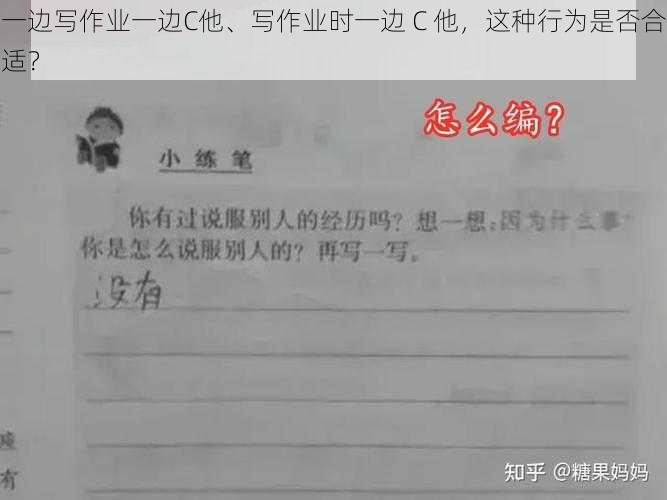 一边写作业一边C他、写作业时一边 C 他，这种行为是否合
适？
怎么编？
小练笔
你有过说服别人的经历吗？想一想：因为什么事
你是怎么说服别人的？再写一写。
没有
痖
有
知乎 @糖果妈妈